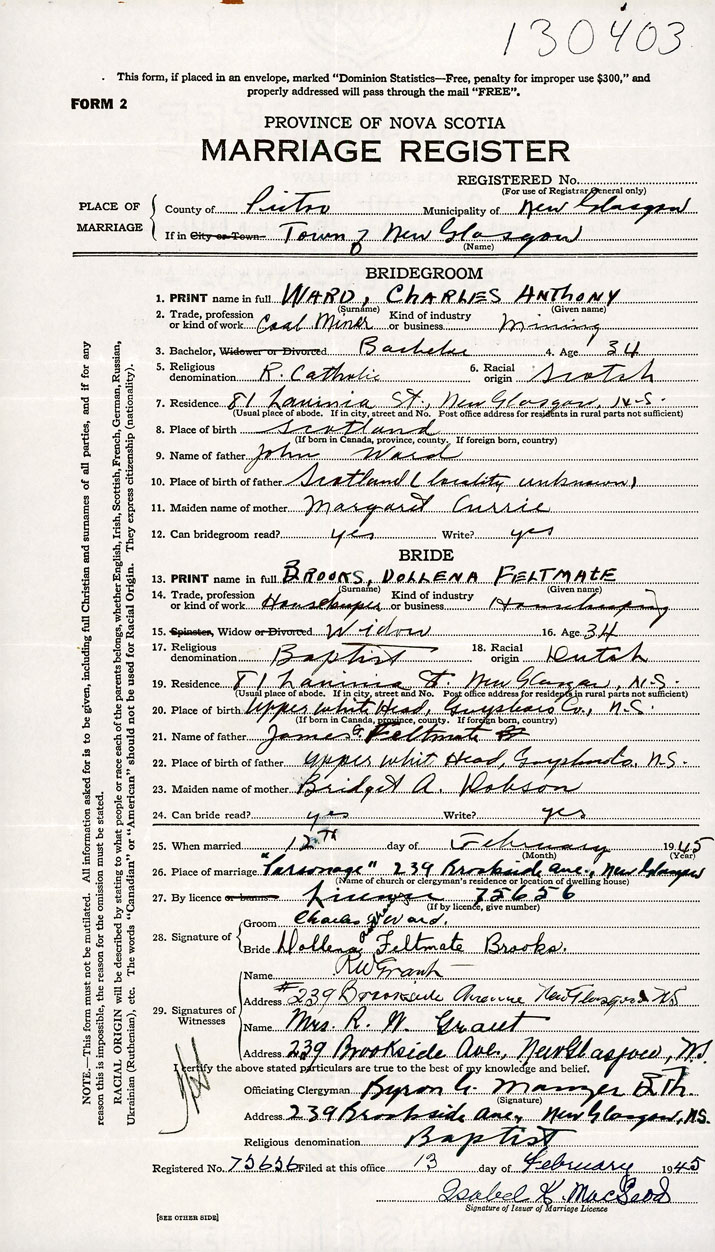 130403
This form, if placed in an envelope, marked "Dominion Statistics—Free, penalty for improper use $300," and
properly addressed will pass through the mail "FREE".
FORM 2
PROVINCE OF NOVA SCOTIA
MARRIAGE REGISTER
REGISTERED No.
(For use of Registrar General only)
PLACE OF MARRIAGE
County of Pictou Municipality of New Glasgow
If in City or Town Town of New Glasgow
(Name)
BRIDEGROOM
1. PRINT name in full WARD, CHARLES ANTHONY
(Surname) (Given name)
2. Trade, profession or kind of work Coal Miner Kind of industry or business Mining
3. Bachelor, Widower or Divorced Bachelor 4. Age 34
5. Religious denomination R. Catholic 6. Racial origin Scotch
7. Residence 81 Lavinia St., New Glasgow, N.S.
(Usual place of abode. If in city, street and No. Post office address for residents in rural parts not sufficient)
8. Place of birth Scotland
(If born in Canada, province, county. If foreign born, country)
9. Name of father John Ward
10. Place of birth of father Scotland (locality unknown)
11. Maiden name of mother Margaret Currie
12. Can bridegroom read? yes Write? yes
BRIDE
13. PRINT name in full BROOKS, DOLLENA FELTMATE
(Surname) (Given name)
14. Trade, profession or kind of work Housekeeper Kind of industry or business Housekeeping
15. Spinster, Widow or Divorced Widow 16. Age 34
17. Religious denomination Baptist 18. Racial origin Dutch
19. Residence 81 Lavinia St. New Glasgow, N.S.
(Usual place of abode. If in city, street and No. Post office address for residents in rural parts not sufficient)
20. Place of birth Upper White Head, Guysboro Co., N.S.
(If born in Canada, province, county. If foreign born, country)
21. Name of father James G. Feltmate
22. Place of birth of father Upper Whit Head, N.S.
23. Maiden name of mother Bridget A. Dobson
24. Can bride read? yes Write? yes
25. When married 12TH day of February 1945
(Month) (Year)
26. Place of marriage "Parsonage" 239 Brookside Ave., New Glasgow
(Name of church or clergyman's residence or location of dwelling house)
27. By licence or banns License 75656
(If by licence, give number)
28. Signature of
Groom Charles Ward.
Bride Dollena Feltmate Brooks.
29. Signatures of Witnesses
Name R W Grant
Address #239 Brookside Avenue New Glasgow NS
Name Mrs. R. W. Grant
Address 239 Brookside Ave., New Glasgow, N.S.
I certify the above stated particulars are true to the best of my knowledge and belief.
Officiating Clergyman Byron
(Signature)
Address 239 Brookside Ave., New Glasgow, N.S.
Religious denomination Baptist
Registered No. 75656 Filed at this office 13 day of February 1945
Isabel K. MacLeod
Signature of Issuer of Marriage Licence
[SEE OTHER SIDE]
NOTE.—This form must not be mutilated. All information asked for is to be given, including full Christian and surnames of all parties, and if for any
reason this is impossible, the reason for the omission must be stated.
RACIAL ORIGIN will be described by stating to what people or race each of the parents belongs, whether English, Irish, Scottish, French, German, Russian,
Ukrainian (Ruthenian), etc. The words "Canadian" or "American" should not be used for Racial Origin. They express citizenship (nationality).